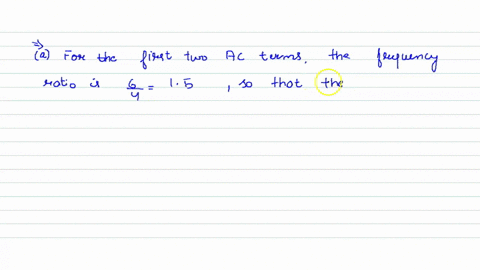 (a) For the first two AC terms, the frequency
ratio is 6/4 = 1.5 , so that the